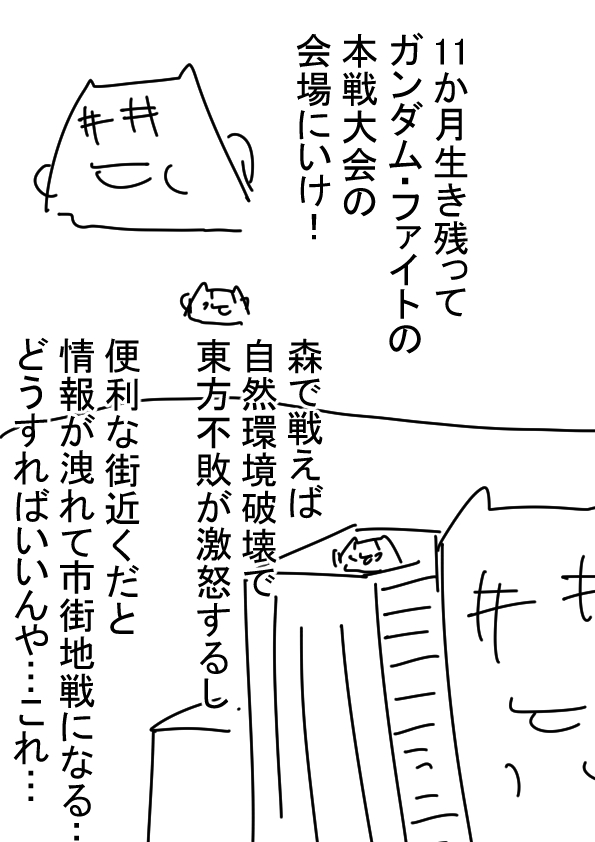 11か月生き残って
ガンダム・ファイトの
本戦大会の
会場にいけ！
森で戦えば
自然環境破壊で
東方不敗が激怒するし
便利な街近くだと
情報が洩れて市街地戦になる…
どうすればいいんや…これ…